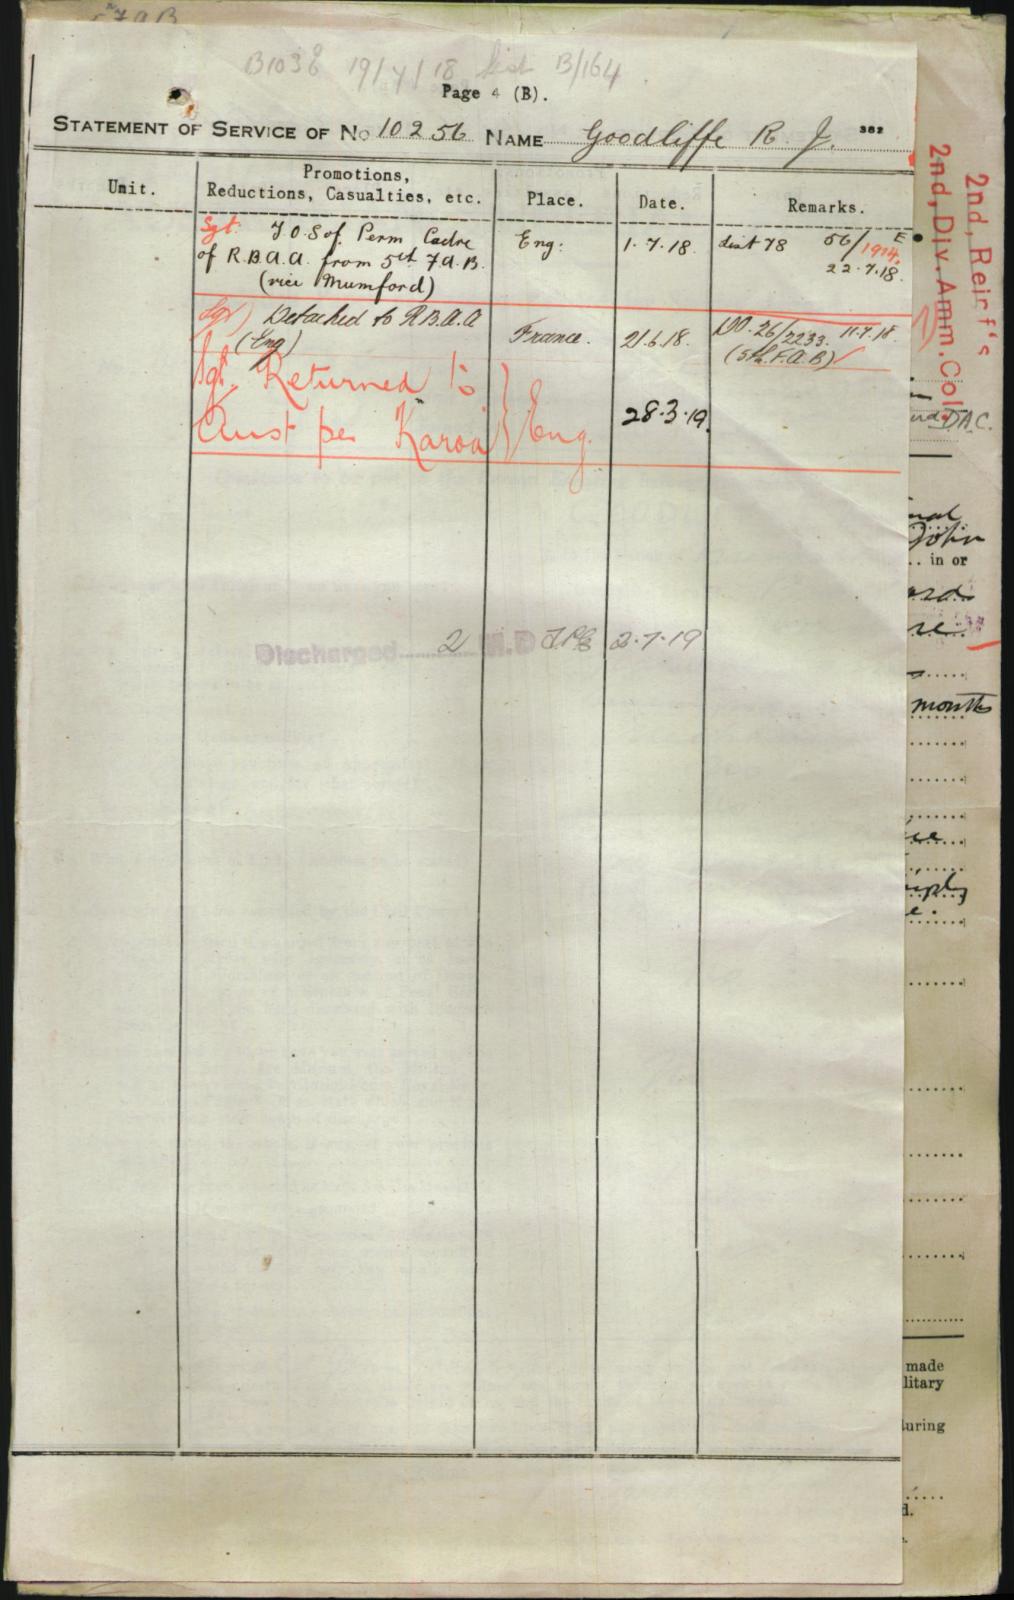 5 F A B
B1038 19/7/18 List B/164
Page 4 (B).
STATEMENT OF SERVICE OF No 10256 NAME Goodliffe R. J. 382
Unit.
Promotions,
Reductions, Casualties, etc.
Place.
Date.
Remarks.
Sgt. T.O.S of Perm Cadre
of R.B.A.A. from 5th F.A.B.
(vice Mumford)
Eng:
1.7.18.
List 78 56/1914. E
22.7.18.
Sgt) Detached to R.B.A.A
(Eng)
France.
21.6.18.
DO. 26/2233. 11.7.18.
(5th. F.A.B)
Sgt. Returned to
Aust per Karoa
Eng.
28.3.19.
Discharged 2 M.D 2.7.19
2nd, Reinf's
2nd, Div. Amm. Col.
D.A.C.
John
.. in or
months
made
litary
uring
d.